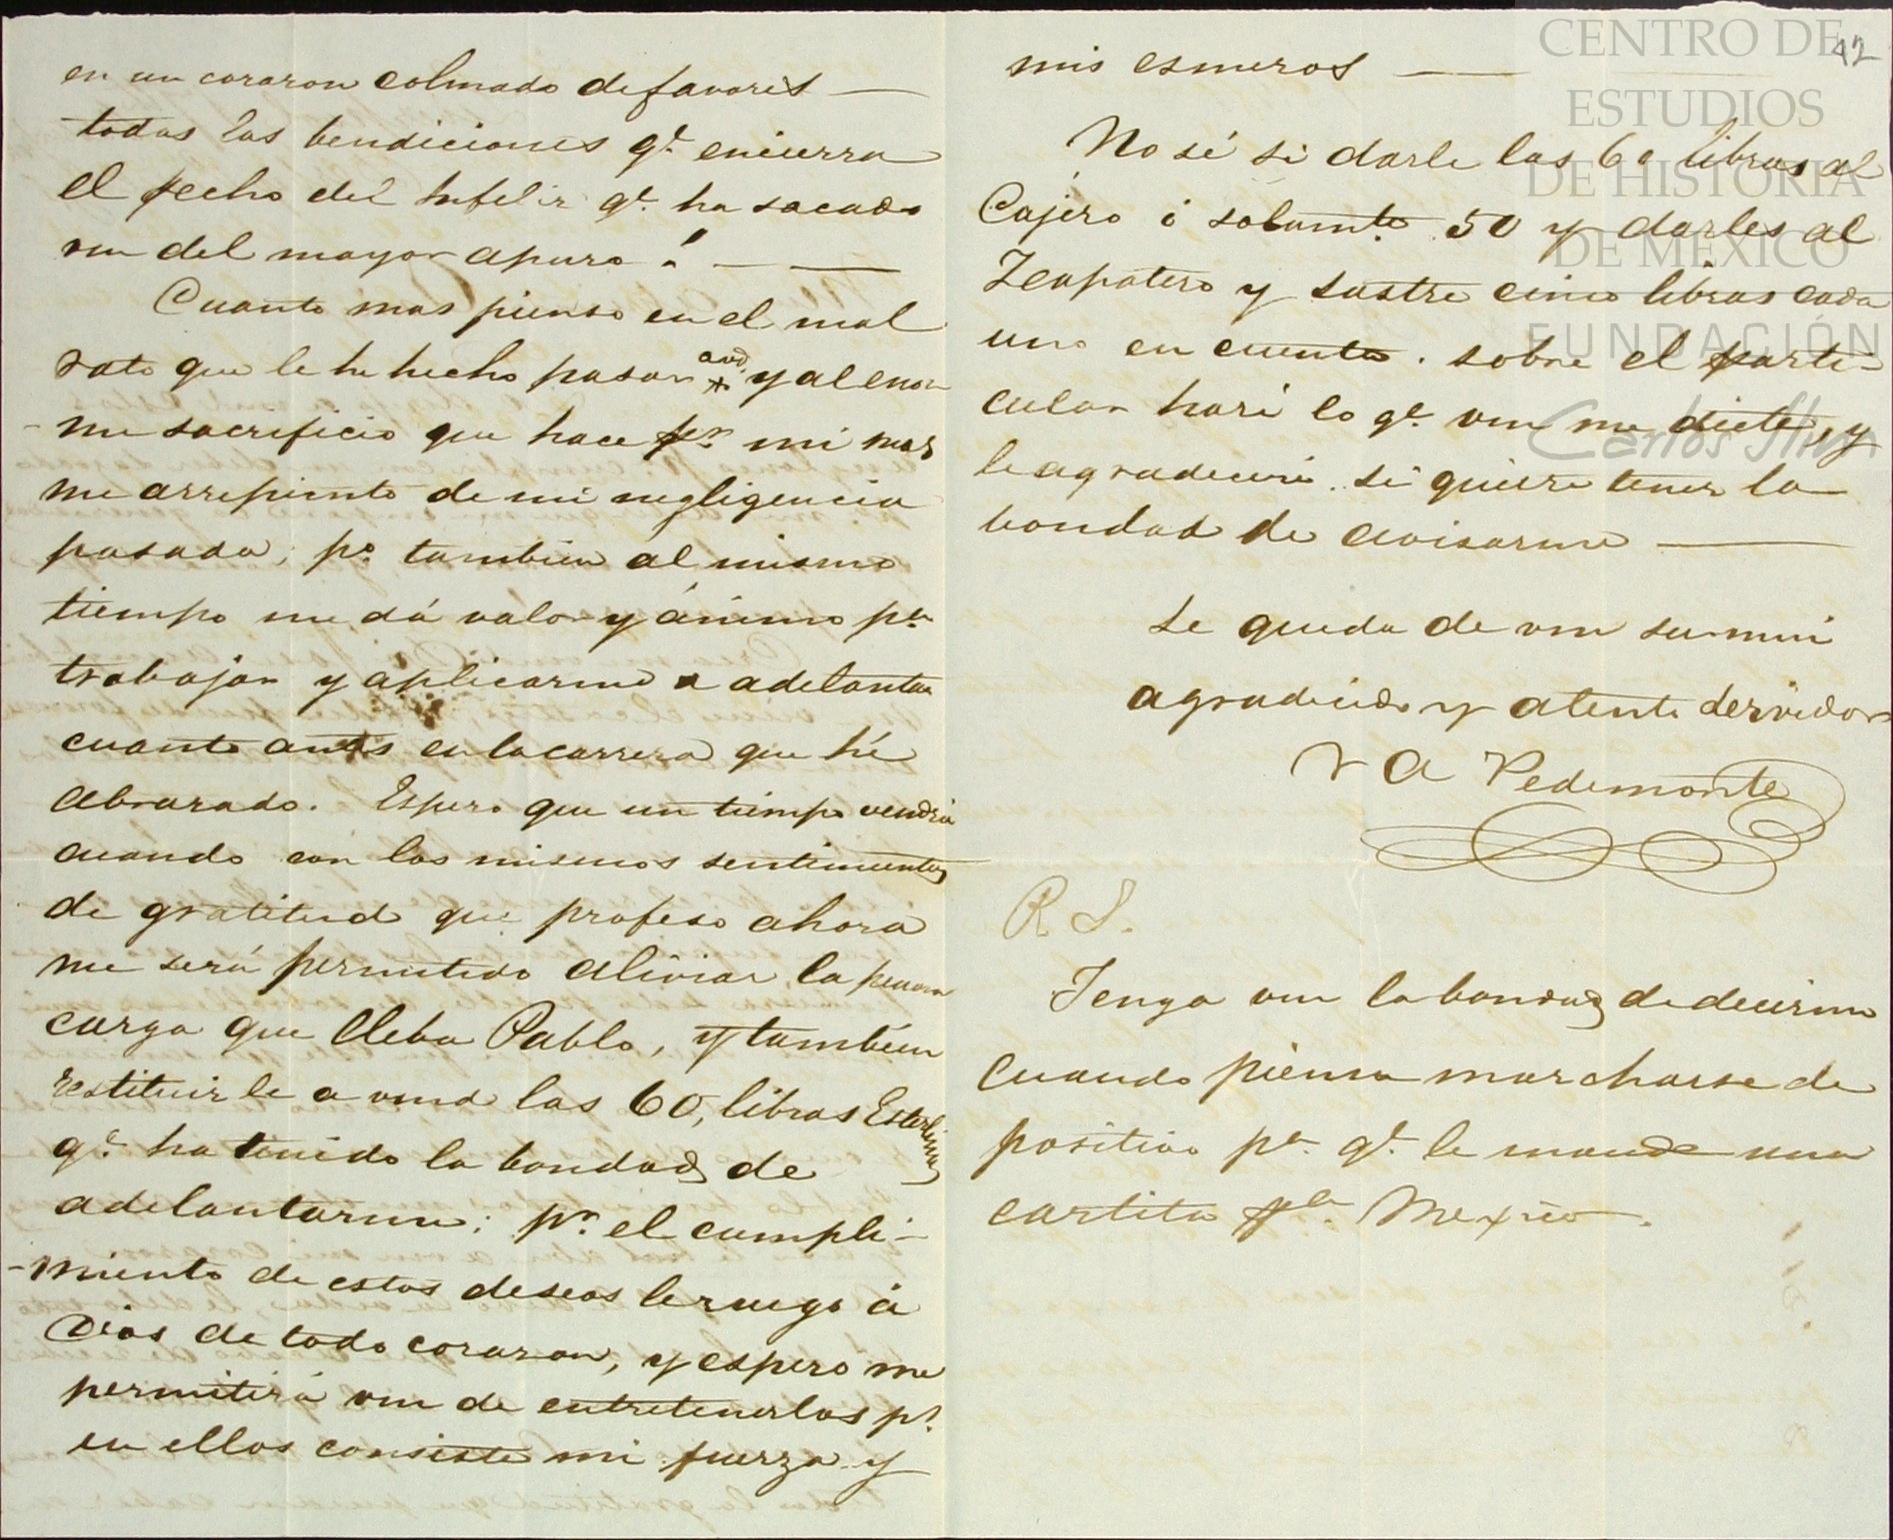 en un corazon colmado de favores —
todas las bendiciones q.e encierra
el pecho del Infeliz q.e ha sacado
vm del mayor apuro! — —
Cuanto mas pienso en el mal
rato que le he hecho pasar a vd. y al enor-
-me sacrificio que hace p.r mi mas
me arrepiento de mi negligencia
pasada; p.o tambien al mismo
tiempo me dá valor y ánimo p.a
trabajar y aplicarme a adelantar
cuanto antes en la carrera que hé
abrazado. Espero que un tiempo vendrá
cuando con los mismos sentimientos
de gratitud que profeso ahora
me será permitido aliviar la penosa
carga que lleba Pablo, y tambien
restituirle a vmd las 60, libras Esterlinas
q.e ha tenido la bondad de
adelantarme; p.r el cumpli-
-miento de estos deseos le ruego á
Dios de todo corazon, y espero me
permitirá vm de entretenerlos p.s
en ellos consiste mi fuerza y
42
mis esmeros —
No sé si darle las 60 libras al
Cajero ó solam.te 50 y darles al
Zapatero y sastre cinco libras cada
uno en cuenta. sobre el parti-
cular haré lo q.e vm me dicte, y
le agradeceré si quiere tener la
bondad de avisarme —
Se queda de vm su mui
agradecido y atento servidor
V A Pedemonte
P. S.
Tenga vm la bondad de decirme
cuando piensa marcharse de
positivo p.a q.e le mande una
cartita p.a Mexico.
CENTRO DE
ESTUDIOS
DE HISTORIA
DE MÉXICO
FUNDACIÓN
Carlos Slim